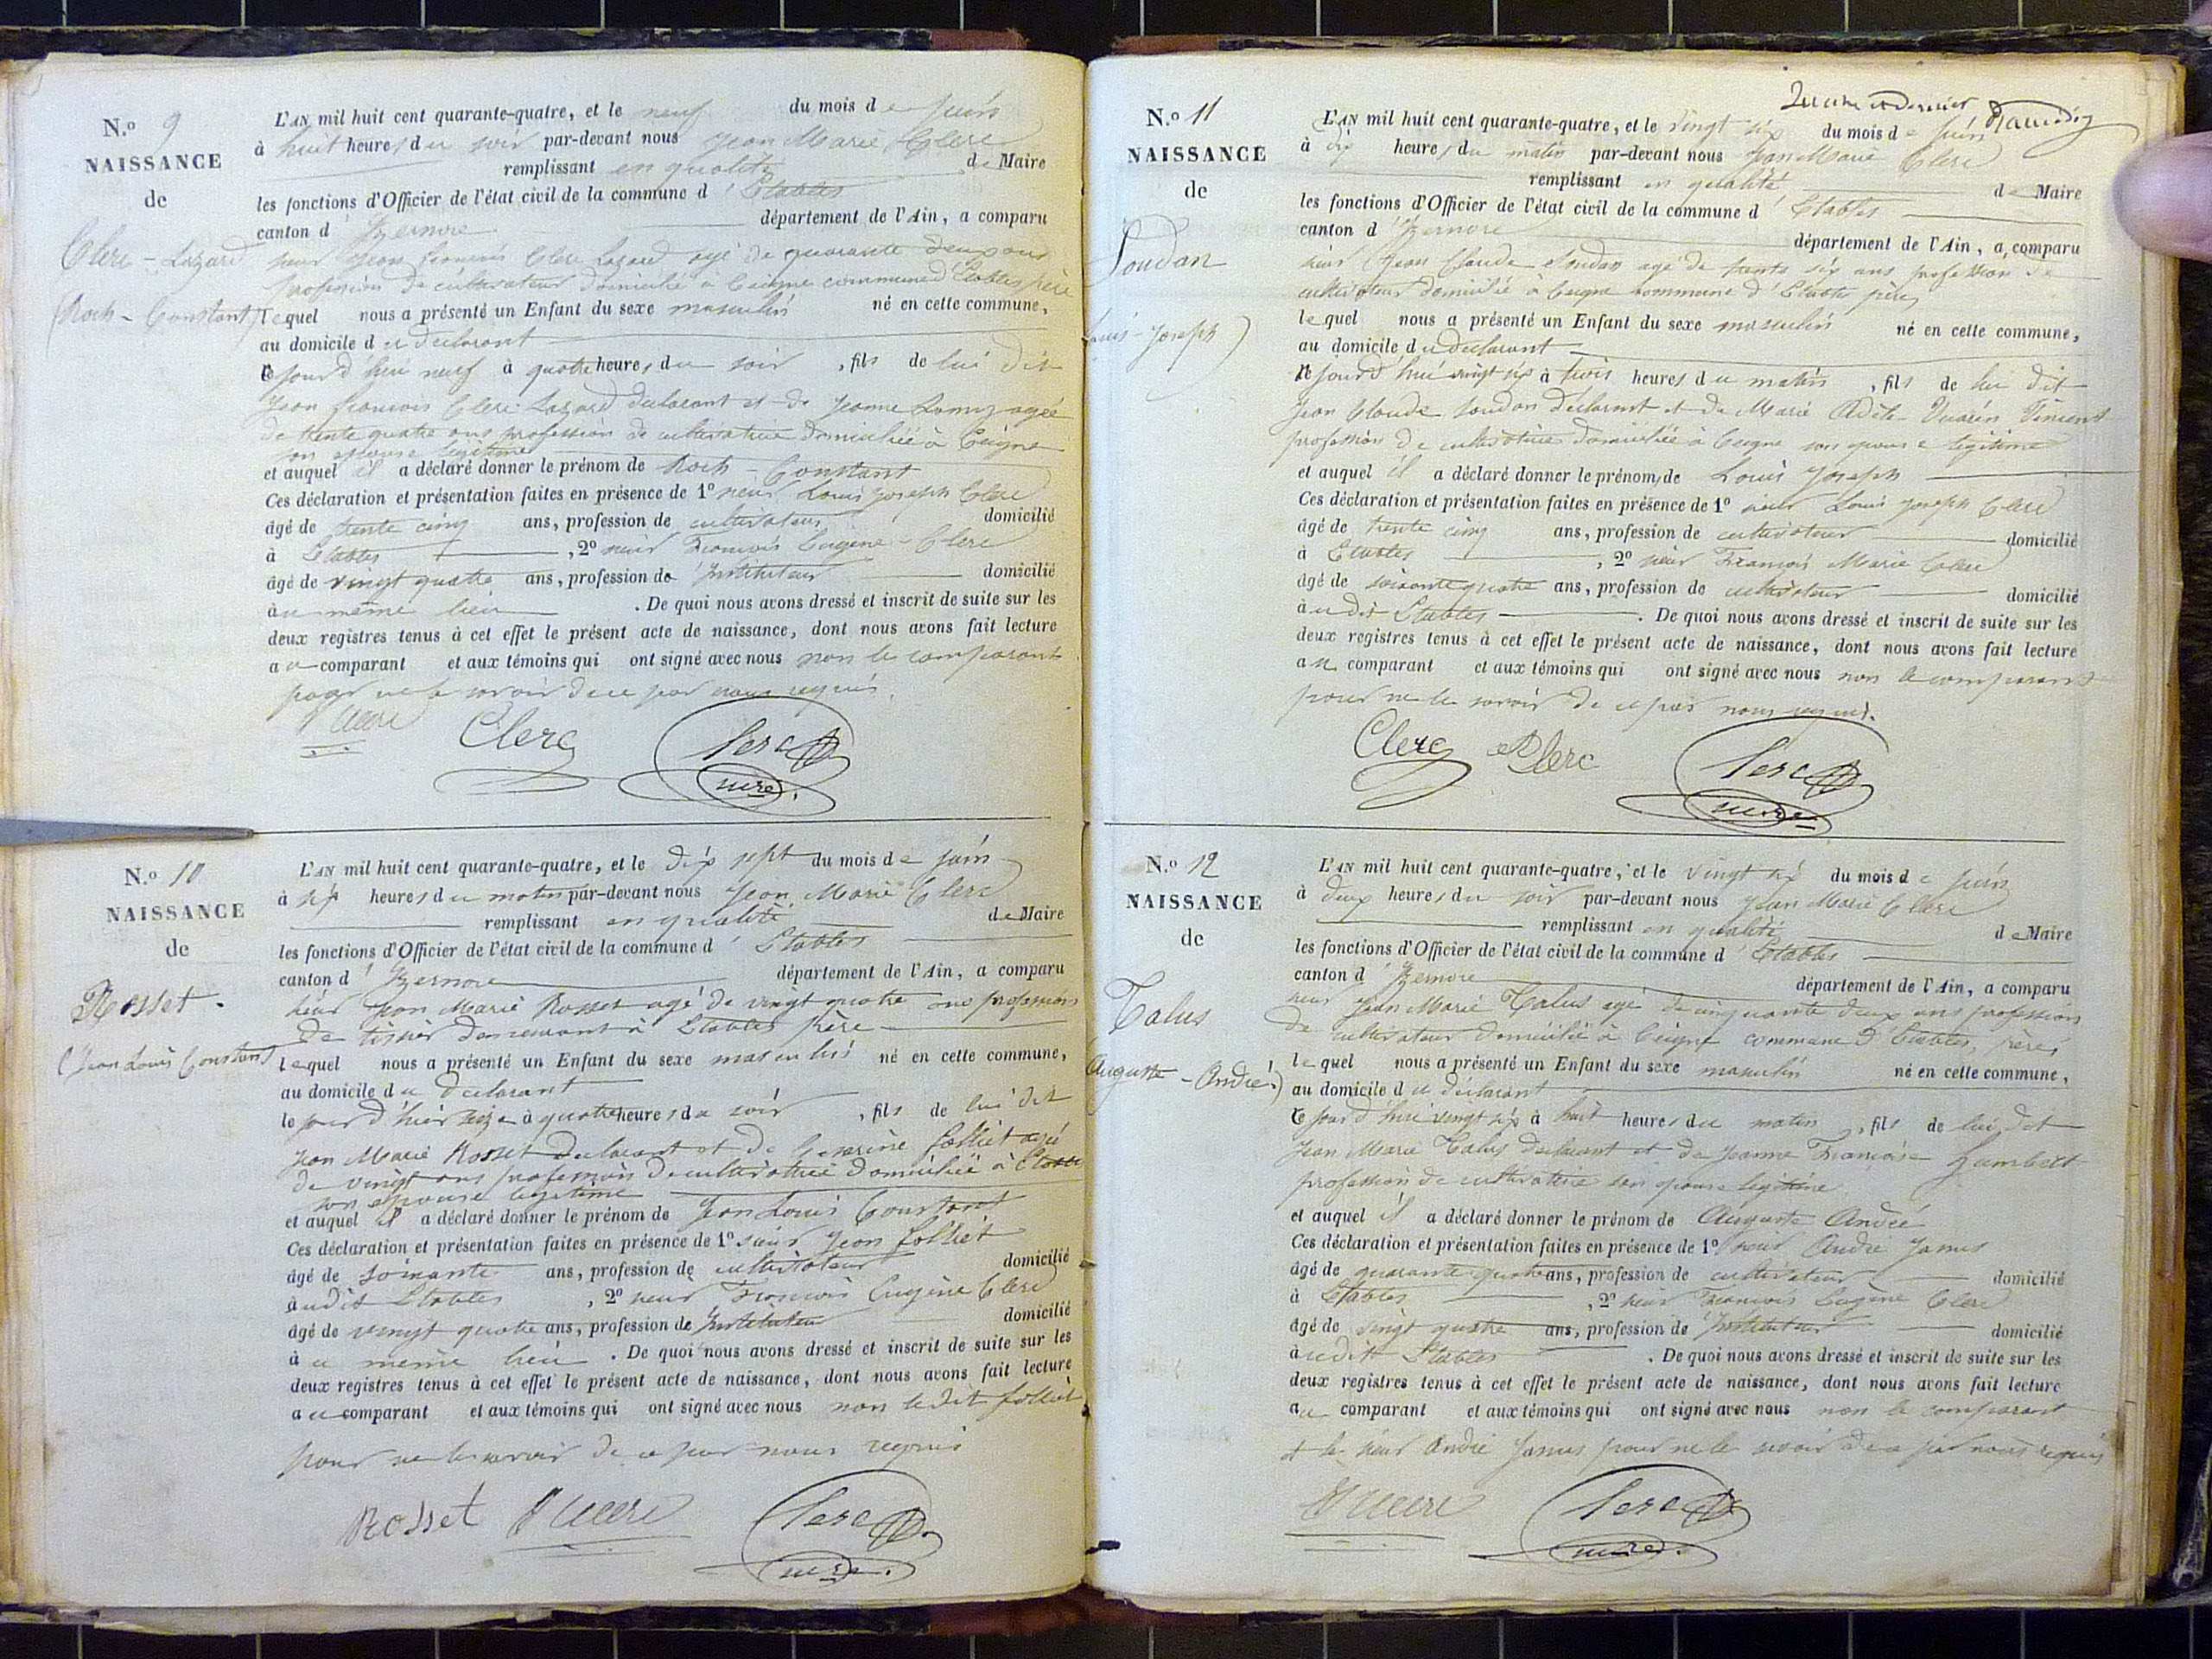 N.o 9
NAISSANCE
de
Clerc - Lazard
(Roch - Constant)
L'AN mil huit cent quarante-quatre, et le neuf du mois de juin
à huit heures du soir par-devant nous Jean Marie Clerc
remplissant en qualité de Maire
les fonctions d'Officier de l'état civil de la commune d'Etables
canton d'Izernore département de l'Ain, a comparu
sieur Jean françois Clerc Lazard agé de quarante deux ans
profession de cultivateur domicilié à Ceigne commune d'Etables père
lequel nous a présenté un Enfant du sexe masculin né en cette commune,
au domicile du déclarant
le jour d'hui neuf à quatre heures du soir, fils de lui dit
Jean françois Clerc Lazard déclarant et de Jeanne agée
de trente quatre ans profession de cultivatrice domiciliée à Ceigne
son épouse légitime
et auquel il a déclaré donner le prénom de Roch - Constant
Ces déclaration et présentation faites en présence de 1o sieur Louis Joseph Clerc
âgé de trente cinq ans, profession de cultivateur domicilié
à Etables, 2o sieur François Eugène Clerc
âgé de vingt quatre ans, profession de Instituteur domicilié
au même lieu. De quoi nous avons dressé et inscrit de suite sur les
deux registres tenus à cet effet le présent acte de naissance, dont nous avons fait lecture
au comparant et aux témoins qui ont signé avec nous non le comparant
pour ne le savoir de ce par nous requis.
Clerc Clerc
mre.
N.o 10
NAISSANCE
de
Rosset.
(Jean Louis Constant)
L'AN mil huit cent quarante-quatre, et le dix sept du mois de juin
à six heures du matin par-devant nous Jean Marie Clerc
remplissant en qualité de Maire
les fonctions d'Officier de l'état civil de la commune d'Etables
canton d'Izernore département de l'Ain, a comparu
sieur Jean Marie Rosset agé de vingt quatre ans profession
de tissier demeurant à Etables père
lequel nous a présenté un Enfant du sexe masculin né en cette commune,
au domicile du déclarant
le jour d'hier seize à quatre heures du soir, fils de lui dit
Jean Marie Rosset déclarant et de folliet agé
de vingt ans profession de cultivatrice domiciliée à
son épouse légitime
et auquel il a déclaré donner le prénom de Jean Louis Constant
Ces déclaration et présentation faites en présence de 1o sieur Jean folliet
âgé de soixante ans, profession de cultivateur domicilié
audit Etables, 2o sieur François Eugène Clerc
âgé de vingt quatre ans, profession de Instituteur domicilié
au même lieu. De quoi nous avons dressé et inscrit de suite sur les
deux registres tenus à cet effet le présent acte de naissance, dont nous avons fait lecture
au comparant et aux témoins qui ont signé avec nous non ledit folliet
pour ne le savoir de ce par nous requis
Rosset Clerc
mre.
N.o 11
NAISSANCE
de
Soudan
Louis-Joseph)
L'AN mil huit cent quarante-quatre, et le vingt six du mois de juin
à dix heures du matin par-devant nous Jean Marie Clerc
remplissant en qualité de Maire
les fonctions d'Officier de l'état civil de la commune d'Etables
canton d'Izernore département de l'Ain, a comparu
sieur Jean Claude Soudan agé de trente six ans profession de
cultivateur domicilié à Ceigne commune d'Etables père
lequel nous a présenté un Enfant du sexe masculin né en cette commune,
au domicile du déclarant
le jour d'hui vingt six à trois heures du matin, fils de lui dit
Jean Claude Soudan déclarant et de Marie
profession de cultivatrice domiciliée à Ceigne son épouse légitime
et auquel il a déclaré donner le prénom de Louis Joseph
Ces déclaration et présentation faites en présence de 1o sieur Louis Joseph Clerc
âgé de trente cinq ans, profession de cultivateur domicilié
à Etables, 2o sieur François Marie Clerc
âgé de soixante quatre ans, profession de cultivateur domicilié
audit Etables. De quoi nous avons dressé et inscrit de suite sur les
deux registres tenus à cet effet le présent acte de naissance, dont nous avons fait lecture
au comparant et aux témoins qui ont signé avec nous non le comparant
pour ne le savoir de ce par nous requis.
Clerc Clerc Clerc
mre
N.o 12
NAISSANCE
de
Talus
Auguste - André)
L'AN mil huit cent quarante-quatre, et le vingt six du mois de juin
à deux heures du soir par-devant nous Jean Marie Clerc
remplissant en qualité de Maire
les fonctions d'Officier de l'état civil de la commune d'Etables
canton d'Izernore département de l'Ain, a comparu
sieur Jean Marie Talus agé de cinquante deux ans profession
de cultivateur domicilié à Ceigne commune d'Etables, père
lequel nous a présenté un Enfant du sexe masculin né en cette commune,
au domicile du déclarant
le jour d'hui vingt six à huit heures du matin, fils de lui dit
Jean Marie Talus déclarant et de Jeanne Françoise Humbert
profession de cultivatrice son épouse légitime
et auquel il a déclaré donner le prénom de Auguste André
Ces déclaration et présentation faites en présence de 1o sieur André
âgé de quarante quatre ans, profession de cultivateur domicilié
à Etables, 2o sieur François Eugène Clerc
âgé de vingt quatre ans, profession de Instituteur domicilié
audit Etables. De quoi nous avons dressé et inscrit de suite sur les
deux registres tenus à cet effet le présent acte de naissance, dont nous avons fait lecture
au comparant et aux témoins qui ont signé avec nous non le comparant
et le sieur André pour ne le savoir de ce par nous requis
Clerc
mre.